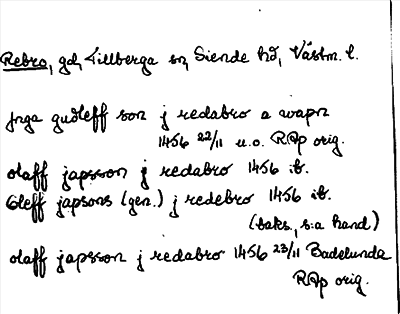 Rebro, gd, Tillberga sn, Siende hd, Västm. l.
jnga gudleff son j redabro a wapn
1456 22/11 u.o. RAp orig.
olaff japsson j redabro 1456 ib.
Oleff japsons (gen.) j redebro 1456 ib.
(baks., s:a hand)
olaff japsson j redabro 1456 23/11 Badelunda
RAp orig.